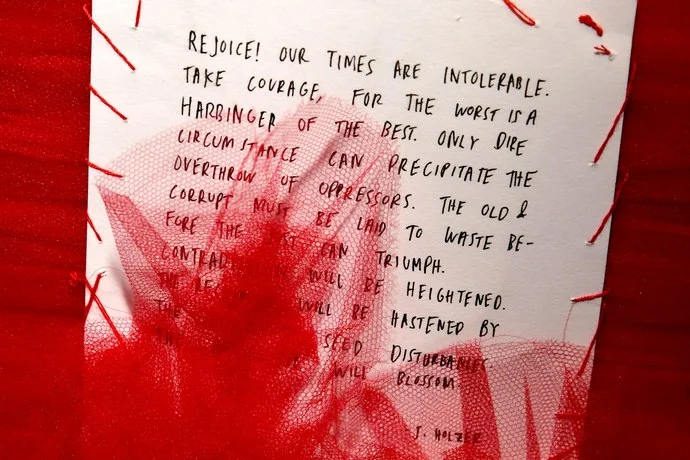 REJOICE! OUR TIMES ARE INTOLERABLE.
TAKE COURAGE, FOR THE WORST IS A
HARBINGER OF THE BEST. ONLY DIRE
CIRCUMSTANCE CAN PRECIPITATE THE
OVERTHROW OF OPPRESSORS. THE OLD &
CORRUPT MUST BE LAID TO WASTE BE-
FORE THE JUST CAN TRIUMPH.
WILL BE HEIGHTENED.
THE WILL BE HASTENED BY
THE SEED DISTURBANCES.
WILL BLOSSOM.
J. HOLZER